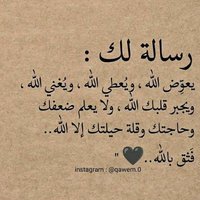 رسالة لك :
يعوّض الله ، ويُعطي الله ، ويُغني الله ،
ويجبر قلبك الله ، ولا يعلم ضعفك
وحاجتك وقلة حيلتك إلا الله..
فَثق بالله.. 🖤 "
instagram : @qawem.0